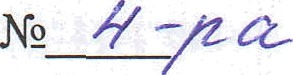 № 4-ра